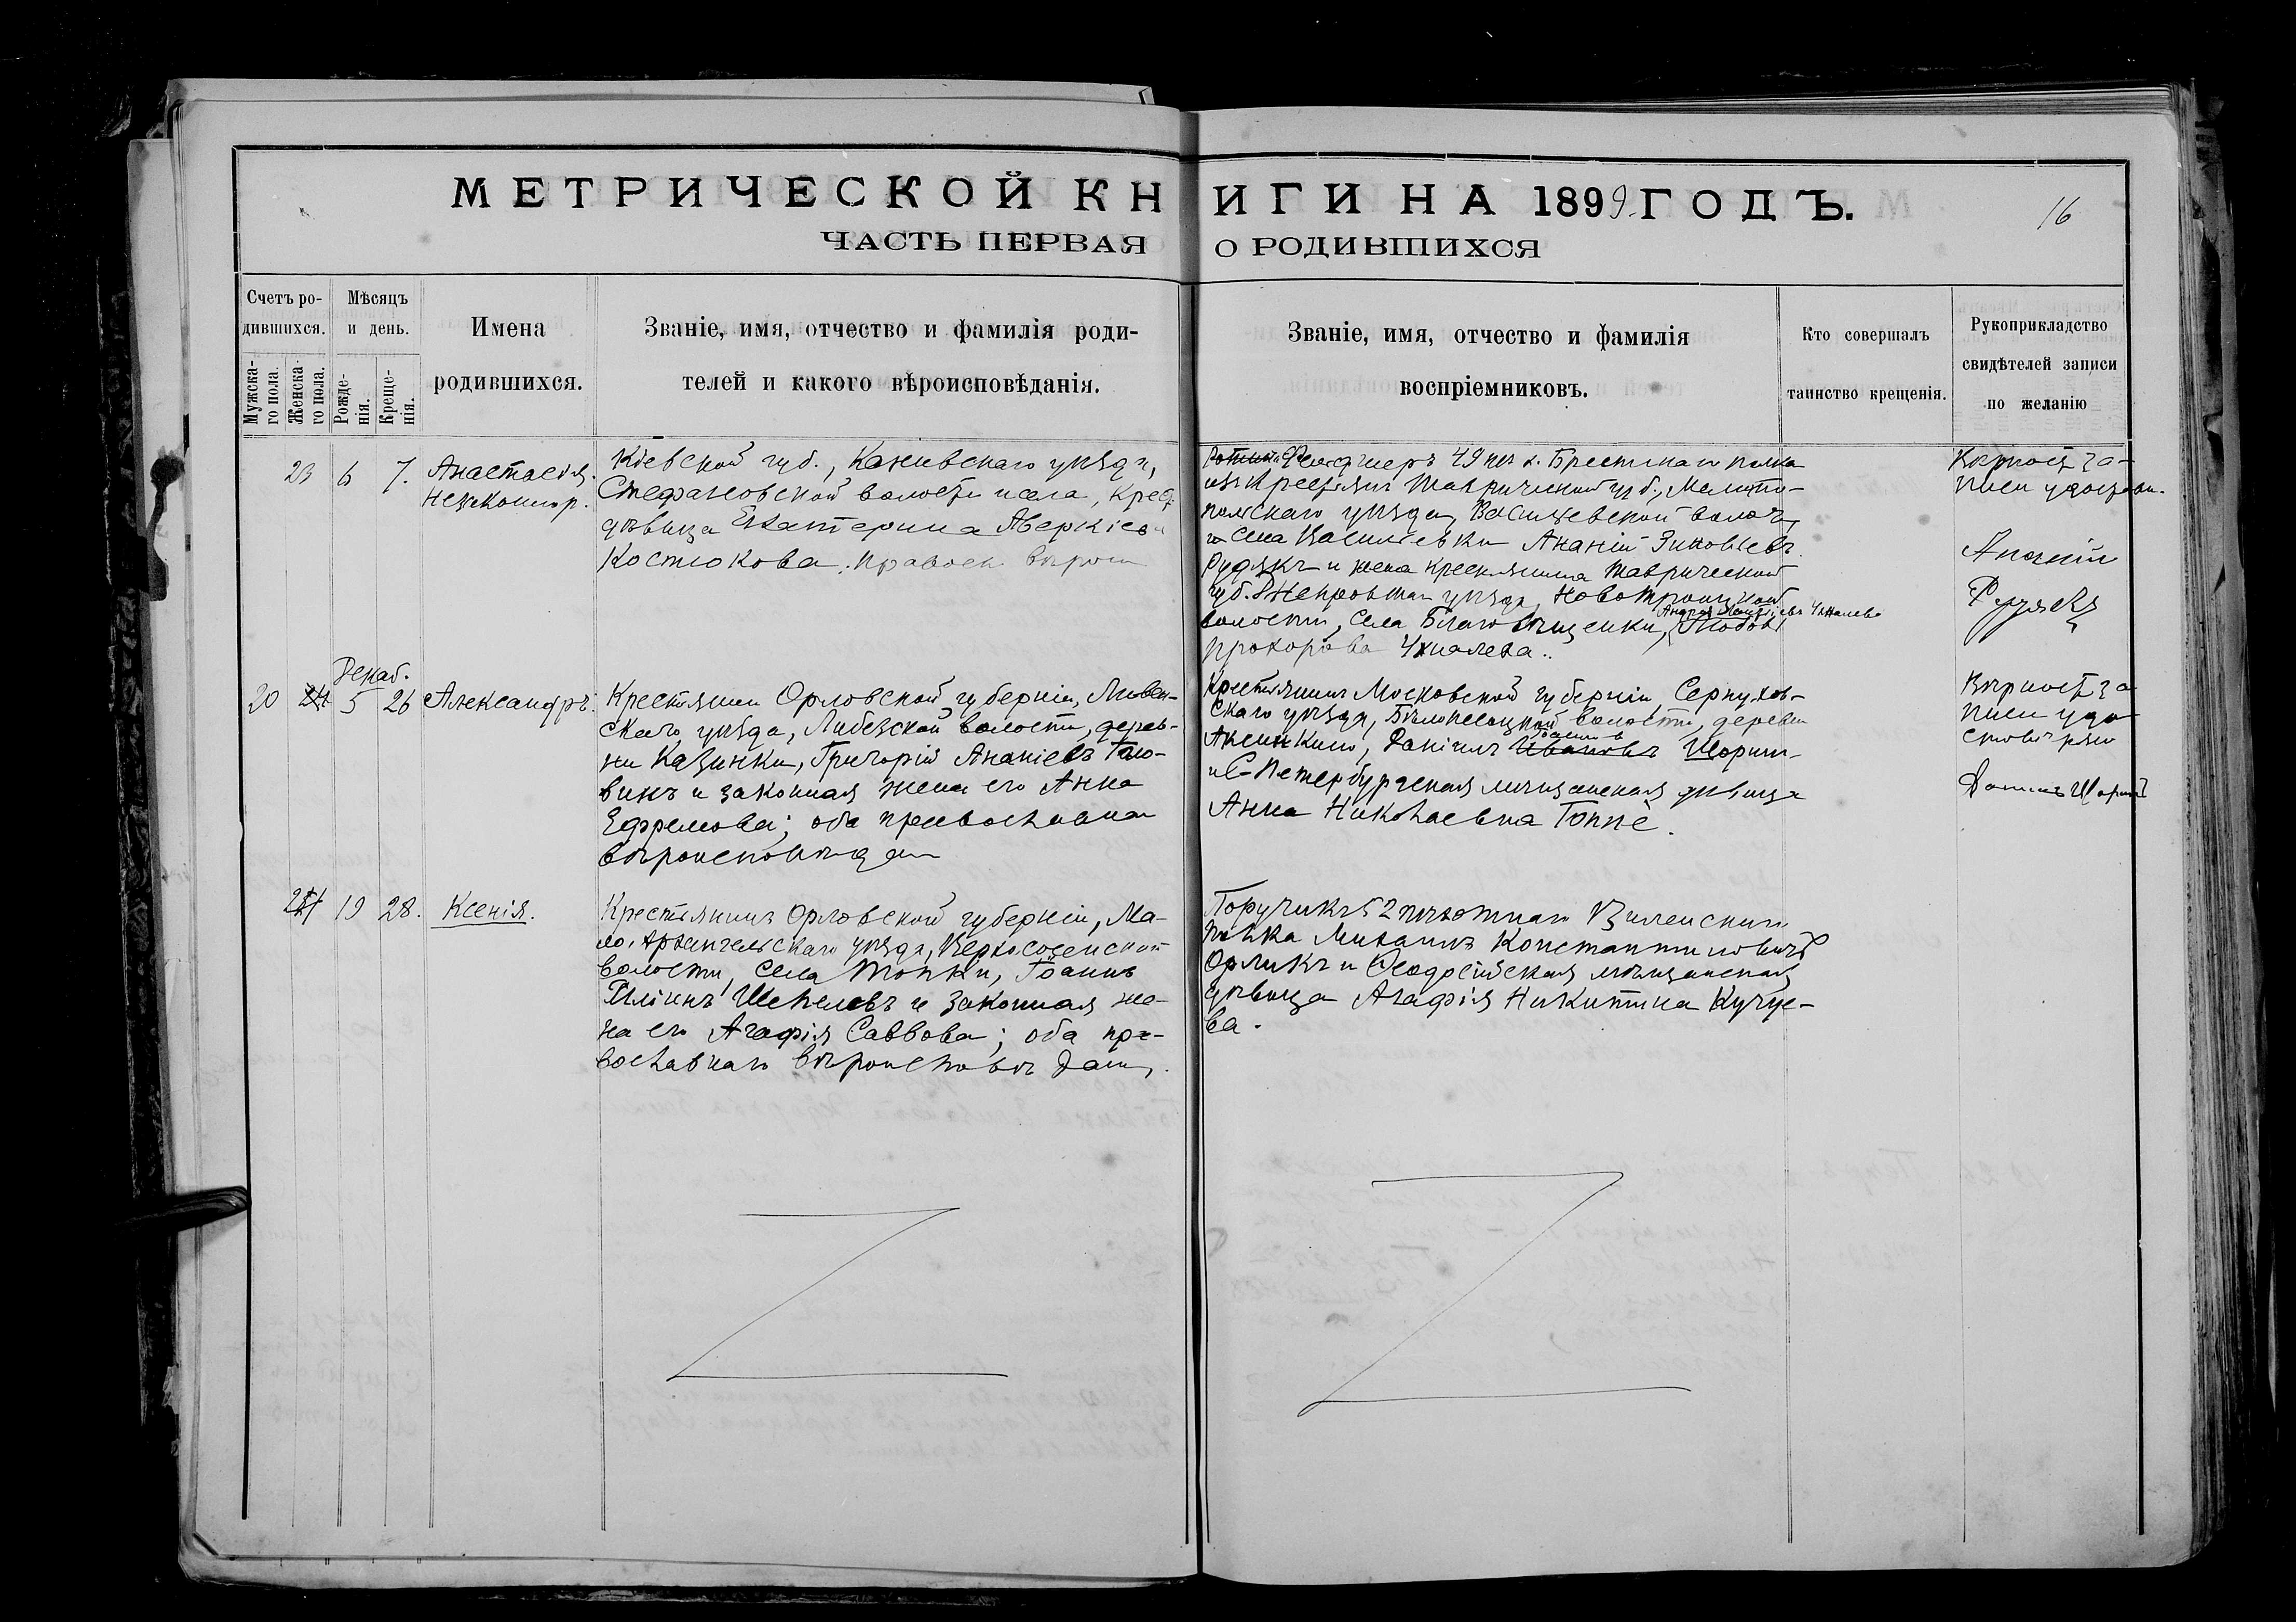 МЕТРИЧЕСКОЙ КНИГИ НА 1899 ГОДЪ.
16
ЧАСТЬ ПЕРВАЯ О РОДИВШИХСЯ
Счетъ ро-
дившихся.
Мужска-
го пола.
Женска-
го пола.
Мѣсяцъ
и день.
Рожде-
нія.
Креще-
нія.
Имена
родившихся.
Званіе, имя, отчество и фамилія роди-
телей и какого вѣроисповѣданія.
Званіе, имя, отчество и фамилія
воспріемниковъ.
Кто совершалъ
таинство крещенія.
Рукоприкладство
свидѣтелей записи
по желанію
23 6 7. Анастасія
Кіевской губ., Каневскаго уѣзда,
Стефановской волости и села, крест.
дѣвица Екатерина Аверкіева
Костюкова. Правосл. вѣроисп
Фельдшеръ 49 пѣх. Брестскаго полка
изъ крестьянъ Таврической губ., Мелито-
польскаго уѣзда, Васильевской волости,
и села Васильевки Ананій Зиновьевъ
Рудякъ и жена крестьянина Таврической
губ. Днепровскаго уѣзда, Новотроицкой
волости, села Благовѣщенки, Любовь
Прохорова
Вѣрность за-
писи удостовѣр.
Ананій
Рудякъ
Декаб.
20 5 26 Александръ.
Крестьянинъ Орловской губерніи, Ливен-
скаго уѣзда, волости, дерев-
ни Казинки, Григорій Ананіевъ Голо-
винъ и законная жена его Анна
Ефремова; оба православнаго
вѣроисповѣданія
Крестьянинъ Московской губерніи, Серпухов-
скаго уѣзда, Бѣлопесоцкой волости, деревни
Даніилъ Ивановъ Шорин
и С-Петербургская мѣщанская дѣвица
Анна Николаевна Гоппе.
Вѣрность за
писи удо
стовѣряю
24 19 28. Ксенія.
Крестьянинъ Орловской губерніи, Ма-
ло-Архангельскаго уѣзда, Верхососенской
волости, села Топки, Іоаннъ
Ильинъ Шепелевъ и законная же-
на его Агафія Саввова; оба пра-
вославнаго вѣроисповѣданія.
Поручикъ 52 пѣхотнаго Виленскаго
полка Михаилъ Константиновичъ
Орликъ и Ѳеодосійская мѣщанская
дѣвица Агафія Никитина Кучуе-
ва.